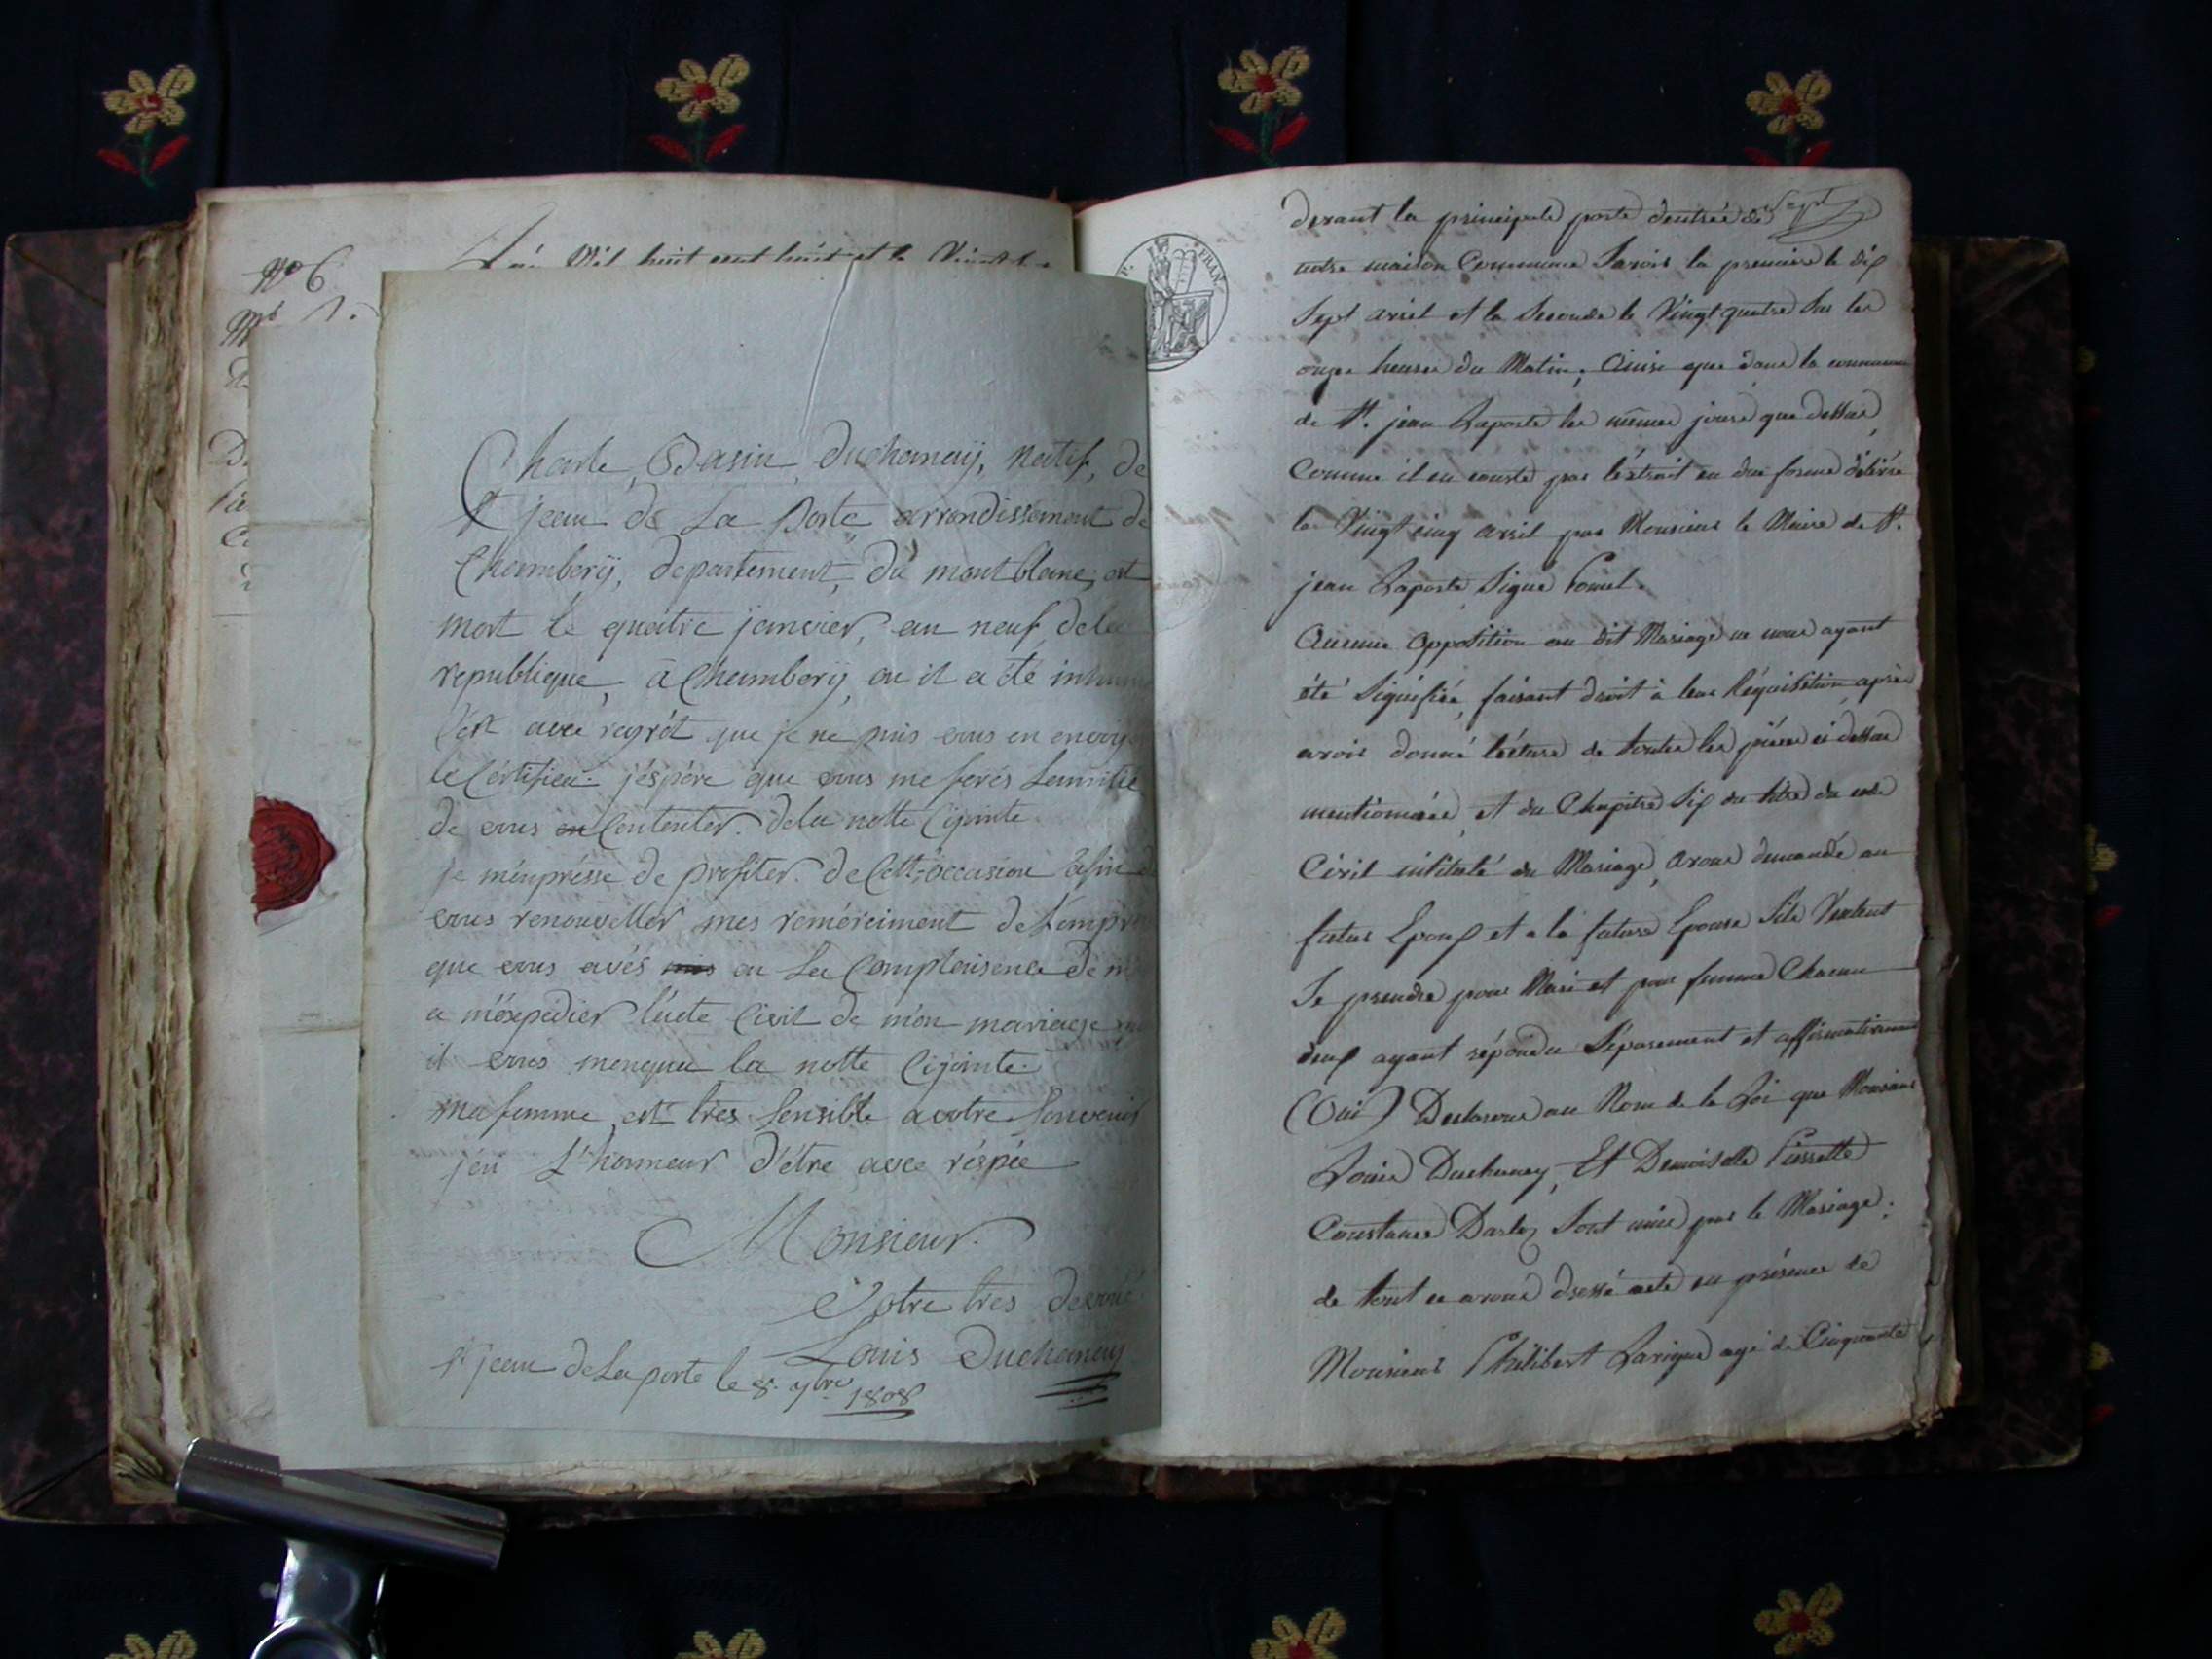 No 6
L'an Mil huit cent huit et le Vingt
Charle, Basin, Duchanaÿ, natif, de
St jean de La Porte arrondissement de
Chamberÿ, departement, du montblanc, est
mort le quatre janvier, an neuf dela
republique, a Chamberÿ, ou il a été inhumé
C'est avec regrét que je ne puis vous en envoÿer
le Certificat. j'éspére que vous me ferés Lamitié
de vous en Contenter. dela notte Cijointe
je m'enprésse de profiter. de Cette occasion afin de
vous renouveller mes remérciment de L'empr
que vous avés mis eu La Complaisence de m
a m'éxpedier l'acte Civil de m'on mariage
il vous menque la notte Cijointe.
ma femme est très Sensible a votre Souvenir
jéu L'honneur d'étre avec réspéc
Monsieur.
Votre très devoué
Louis Duchanaÿ
St jean deLa porte le 8. 7bre 1808
devant la principale porte d'entrée de Sept
notre maison Commune Savoir la premiere le dix
Sept avril et la Seconde le Vingt quatre Sur les
onze heures du Matin; Ainsi que dans la commune
de St. jean Laporte les mêmes jours que dessus,
Comme il en conste par l'extrait en due forme délivré
le Vingt cinq avril par Monsieur le Maire de St.
jean Laporte Signé
Aucune Opposition au dit Mariage ne nous ayant
été Signifiée, faisant droit à leur Réquisition, après
avoir donné lécture de toutes les piéces ci dessus
mentionnées, et du Chapitre Six du titre du code
Civil intitulé du Mariage, avons demandé au
futur Epoux et a la future Epouse S'ils Veulent
Se prendre pour Mari et pour femme Chacun
deux ayant répondu Séparement et affirmativement
(Oui) Declarons au Nom de la Loi que Monsieur
Louis Duchanay, Et Demoiselle Pierrette
Constance Sont unis par le Mariage;
de tout ce avons dressé acte en présence de
Monsieur Philibert agé de Cinquante